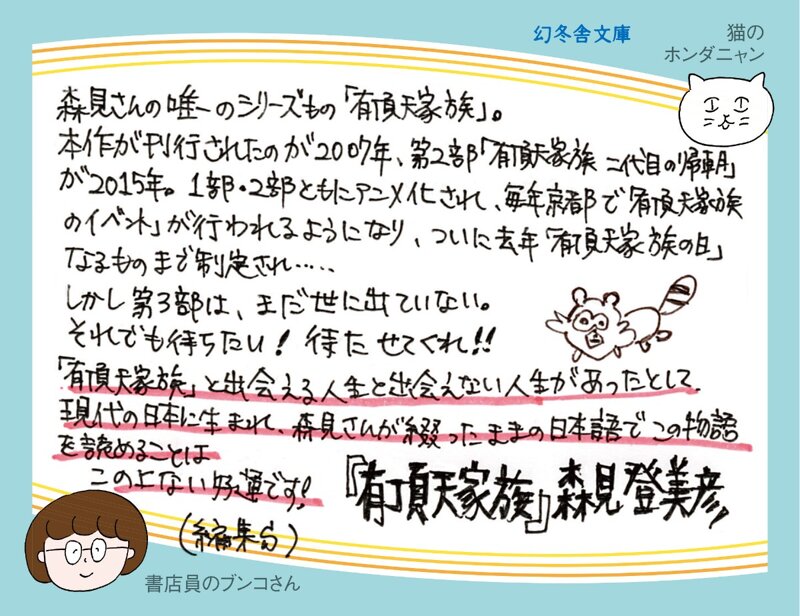 幻冬舎文庫
猫の
ホンダニャン
森見さんの唯一のシリーズもの「有頂天家族」。
本作が刊行されたのが2007年、第2部「有頂天家族 二代目の帰朝」
が2015年。1部・2部ともにアニメ化されて、毎年京都で「有頂天家族
のイベント」が行われるようになり、ついに去年「有頂天家族の日」
なるものまで制定され……
しかし第3部は、まだ世に出ていない。
それでも待ちたい！待たせてくれ!!
「有頂天家族」と出会える人生と出会えない人生があったとして、
現代の日本に生まれて、森見さんが綴ったままの日本語でこの物語
を読めることは
この上ない好運です！
『有頂天家族』森見登美彦
(編集S)
書店員のブンコさん